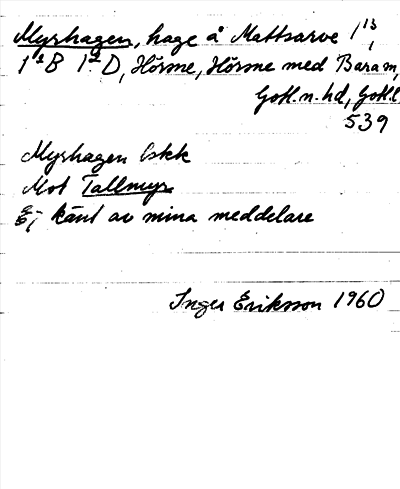 Myrhagen, hage å Mattsarve 1¹³,
1¹³B 1²D, Hörsne, Hörsne med Bara sn,
Gotl. n. hd, Gotl. l
539
Myrhagen Eskk
Mot Tallmyr
Ej känt av mina meddelare
Inger Eriksson 1960